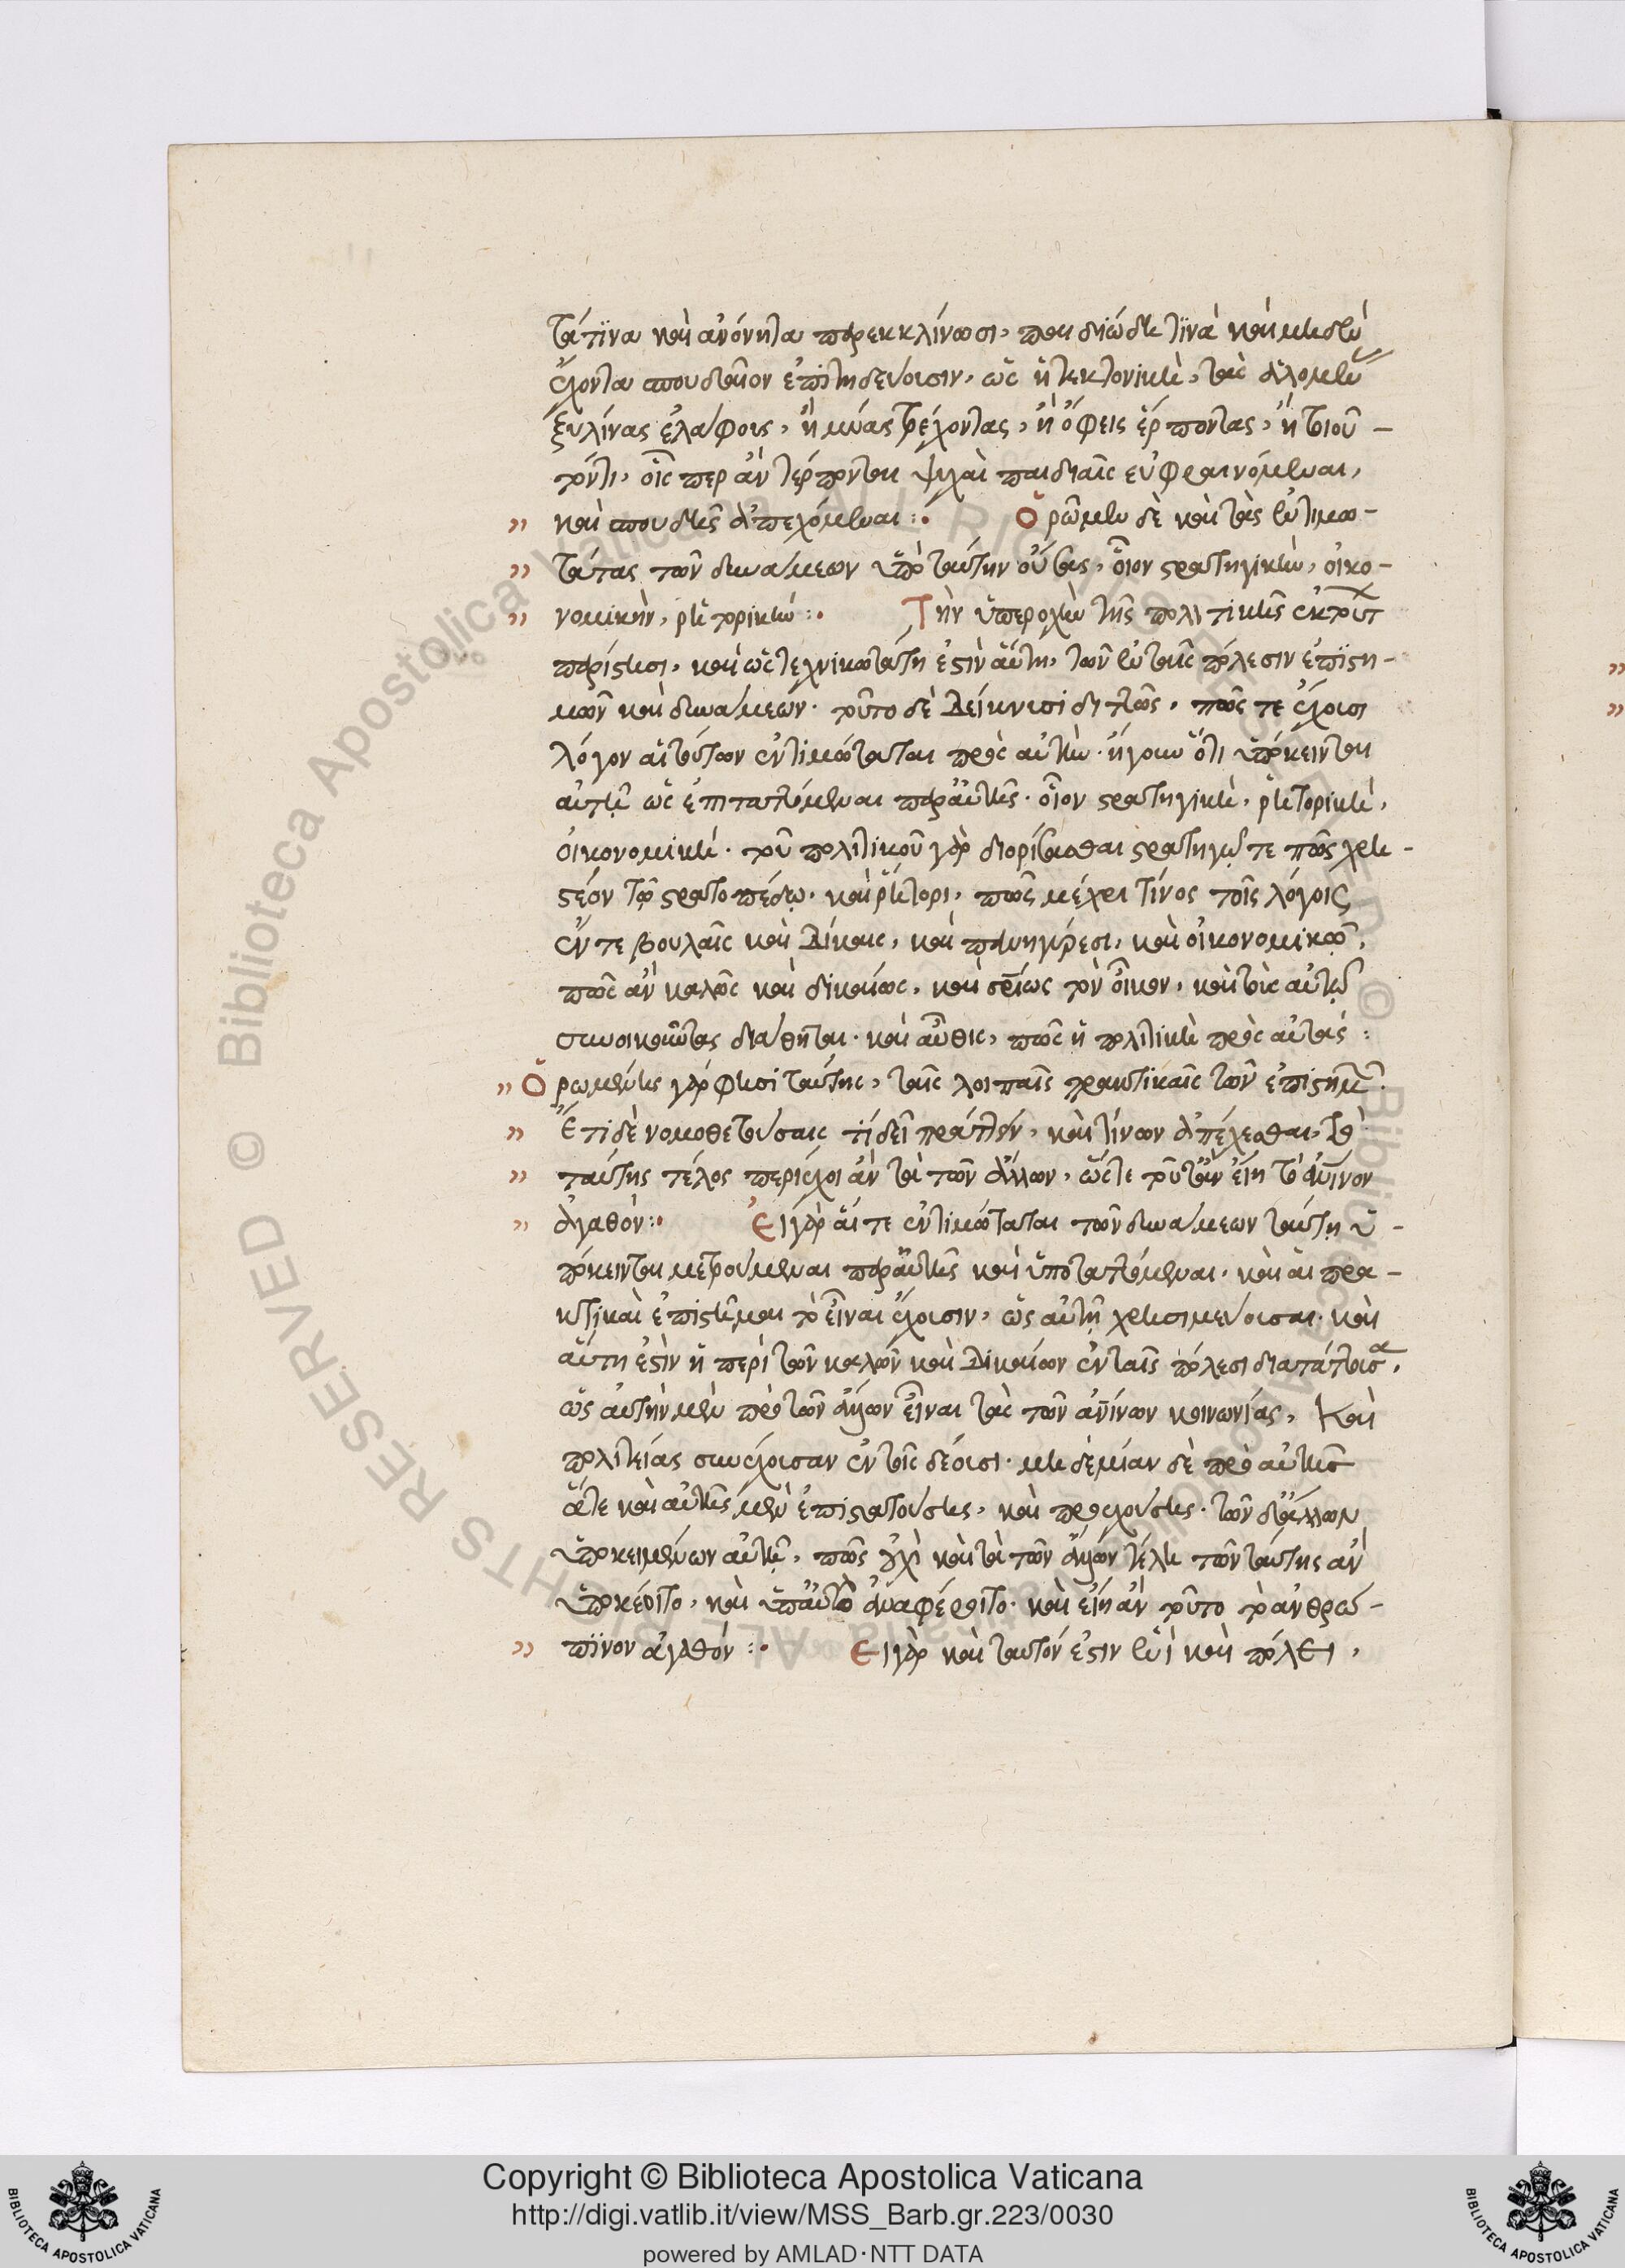 τά τινα καὶ ἀνόνητα παρεκκλίνωσι, παιδιώδη τινὰ καὶ μηδὲν
ἔχοντα σπουδαῖον ἐπιτηδεύουσιν, ὡς ἡ τεκτονικὴ, τὰς
ξυλίνας ἐλάφους, ἢ μύας τρέχοντας, ἢ ὄφεις ἕρποντας, ἢ
οἷς περ ἂν τέρπονται ψυχαὶ παιδιαῖς εὐφραινόμεναι,
καὶ σπουδῆς ἀπεχόμεναι :· Ὁρῶμεν δὲ καὶ τὰς ἐντιμω-
τάτας τῶν δυνάμεων ὑπὸ ταύτην οὔσας, οἷον στρατηγικὴν, οἰκο-
νομικὴν, ῥητορικήν :· Τὴν ὑπεροχὴν τῆς πολιτικῆς ἐκ τούτ
παρίστησι, καὶ ὡς τεχνικωτάτη ἐστὶν αὕτη, τῶν ἐν ταῖς πόλεσιν ἐπιστη-
μῶν καὶ δυνάμεων. τοῦτο δὲ δείκνυσι διττῶς, πῶς τε ἔχουσι
λόγον αἱ τούτων ἐντιμώταται πρὸς αὐτὴν. ἤγουν ὅτι ὑπόκεινται
αὐτῇ ὡς ἐπιταττόμεναι παρ' αὐτῆς. οἷον στρατηγικὴ, ῥητορικὴ,
οἰκονομική. τοῦ πολιτικοῦ γὰρ διορίσασθαι στρατηγῷ τε πῶς χρη-
στέον τῷ στρατοπέδῳ. καὶ ῥήτορι, πῶς μέχρι τίνος τοῖς λόγοις
ἔν τε βουλαῖς καὶ δίκαις, καὶ πανηγύρεσι, καὶ οἰκονομικῷ,
πῶς ἂν καλῶς καὶ δικαίως, καὶ τὸν οἶκον, καὶ τοὺς αὐτῷ
συνοικοῦντας διαθῆται. καὶ αὖθις, πῶς ἡ πολιτικὴ πρὸς αὐτάς :
Ὁρωμένης γάρ φησι ταύτης, ταῖς λοιπαῖς πρακτικαῖς τῶν ἐπιστημ
Ἔτι δὲ νομοθετούσαις τί δεῖ πράττειν, καὶ τίνων ἀπέχεσθαι, τὸ
ταύτης τέλος περιέχοι ἂν τὰ τῶν ἄλλων, ὥστε τοῦτ' ἂν εἴη τὸ ἀνινον
ἀγαθόν :· Εἰ γὰρ αἵ τε ἐντιμόταται τῶν δυνάμεων ταύτῃ ὑ-
πόκεινται μετρούμεναι παρ' αὐτῆς καὶ ὑποταττόμεναι. καὶ αἱ πρα-
κτικαὶ ἐπιστῆμαι τὸ εἶναι ἔχουσιν, ὡς αὐτῇ χρησιμεύουσαι. καὶ
αὕτη ἐστὶν ἡ περὶ τῶν καλῶν καὶ δικαίων ἐν ταῖς πόλεσι διατάττουσα,
ὡς αὐτὴν μὲν πρὸ τῶν ἄλλων εἶναι τὰς τῶν ἀνίνων κοινωνίας, καὶ
πολιτείας συνέχουσαν ἐν τοῖς δέουσι. μηδεμίαν δὲ πρὸ αὐτῆς
ἅτε καὶ αὐτῆς μὲν ἐπιστατούσης, καὶ προεχούσης. τῶν δ' ἄλλων
ὑποκειμένων αὐτῇ, πῶς οὐχὶ καὶ τὰ τῶν ἄλλων τέλη τῶν ταύτης ἂν
ὑποκέοιτο, καὶ ὑπ' αὐτὸ ἀναφέροιτο. καὶ εἴη ἂν τοῦτο τὸ ἀνθρώ-
πινον ἀγαθόν :· Εἰ γὰρ καὶ ταυτόν ἐστιν ἑνὶ καὶ πόλει,
Copyright © Biblioteca Apostolica Vaticana
http://digi.vatlib.it/view/MSS_Barb.gr.223/0030
powered by AMLAD·NTT DATA
BIBLIOTECA APOSTOLICA VATICANA
BIBLIOTECA APOSTOLICA VATICANA